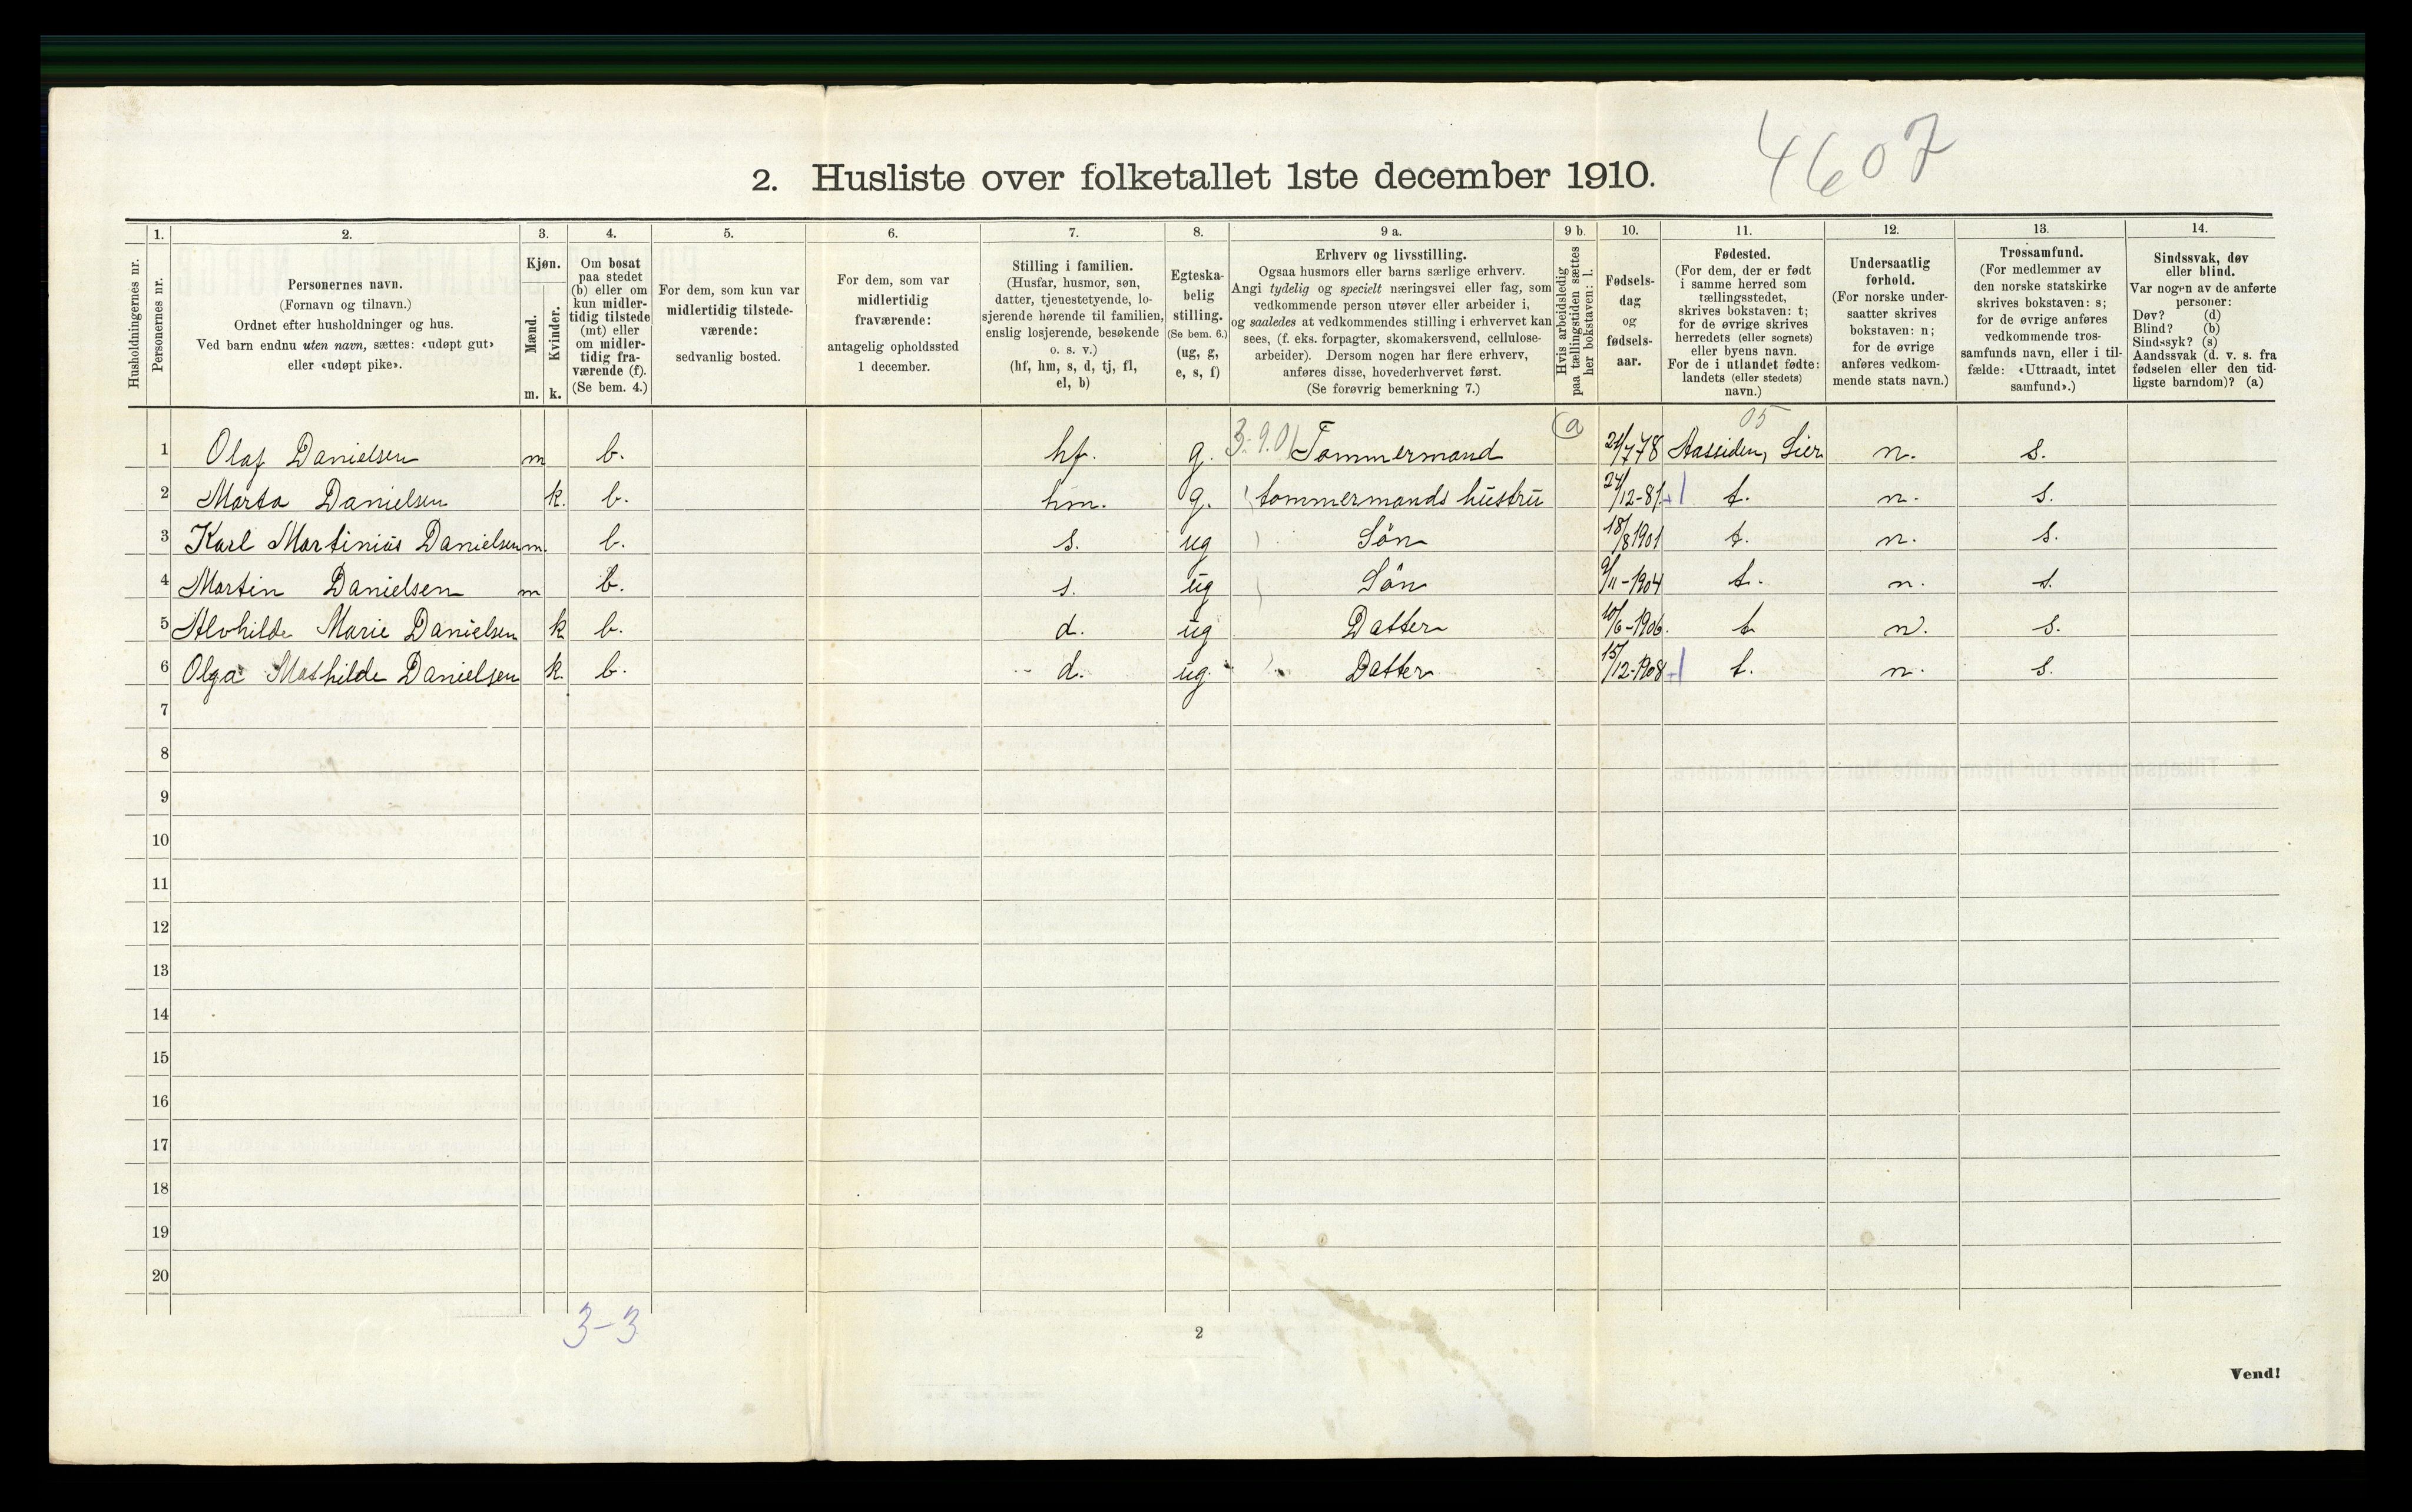 4607
2. Husliste over folketallet 1ste december 1910.
Husholdningernes nr.
1.
Personernes nr.
2.
Personernes navn.
(Fornavn og tilnavn.)
Ordnet efter husholdninger og hus.
Ved barn endnu uten navn, sættes: «udøpt gut»
eller «udøpt pike».
3.
Kjøn.
Mænd.
Kvinder.
m. k.
4.
Om bosat
paa stedet
(b) eller om
kun midler-
tidig tilstede
(mt) eller
om midler-
tidig fra-
værende (f).
(Se bem. 4.)
5.
For dem, som kun var
midlertidig tilstede-
værende:
sedvanlig bosted.
6.
For dem, som var
midlertidig
fraværende:
antagelig opholdssted
1 december.
7.
Stilling i familien.
(Husfar, husmor, søn,
datter, tjenestetyende, lo-
sjerende hørende til familien,
enslig losjerende, besøkende
o. s. v.)
(hf, hm, s, d, tj, fl,
el, b)
8.
Egteska-
belig
stilling.
(Se bem. 6.)
(ug, g,
e, s, f)
9 a.
Erhverv og livsstilling.
Ogsaa husmors eller barns særlige erhverv.
Angi tydelig og specielt næringsvei eller fag, som
vedkommende person utøver eller arbeider i,
og saaledes at vedkommendes stilling i erhvervet kan
sees, (f. eks. forpagter, skomakersvend, cellulose-
arbeider). Dersom nogen har flere erhverv,
anføres disse, hovederhvervet først.
(Se forøvrig bemerkning 7.)
9 b.
Hvis arbeidsledig
paa tællingstiden sættes
her bokstaven: l.
10.
Fødsels-
dag
og
fødsels-
aar.
11.
Fødested.
(For dem, der er født
i samme herred som
tællingsstedet,
skrives bokstaven: t;
for de øvrige skrives
herredets (eller sognets)
eller byens navn.
For de i utlandet fødte:
landets (eller stedets)
navn.)
12.
Undersaatlig
forhold.
(For norske under-
saatter skrives
bokstaven: n;
for de øvrige
anføres vedkom-
mende stats navn.)
13.
Trossamfund.
(For medlemmer av
den norske statskirke
skrives bokstaven: s;
for de øvrige anføres
vedkommende tros-
samfunds navn, eller i til-
fælde: «Uttraadt, intet
samfund».)
14.
Sindssvak, døv
eller blind.
Var nogen av de anførte
personer:
Døv? (d)
Blind? (b)
Sindssyk? (s)
Aandssvak (d. v. s. fra
fødselen eller den tid-
ligste barndom)? (a)
a 05
1 Olaf Danielsen m b. hf. g. 3.9.01 Tømmermand 21/7 78 Aasseiden, Lier n. s.
2 Marta Danielsen k. b. hm. g. tømmermands hustru 24/12-81 t. n. s.
3 Karl Martinius Danielsen m. b. s. ug Sön 18/8 1901 t. n. s.
4 Martin Danielsen m b. s. ug Sön 9/11-1904 t. n. s.
5 Alvhilde Marie Danielsen k b. d. ug Datter 10/6-1906. t n. s.
6 Olga Mathilde Danielsen k. b. d. ug. Datter 15/12-1908 t. n. s.
7
8
9
10
11
12
13
14
15
16
17
18
19
20
3-3
2
Vend!